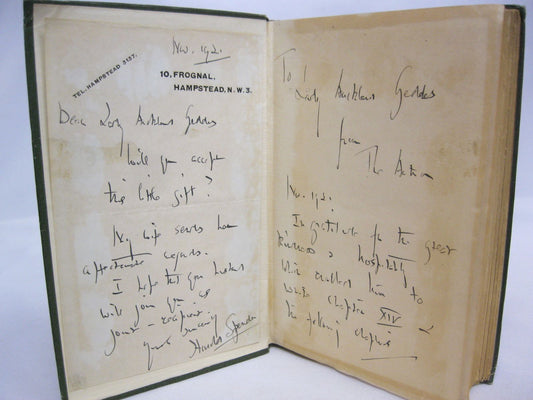 Nov. 1921
TEL. HAMPSTEAD 3137.
10, FROGNAL,
HAMPSTEAD, N.W. 3.
Dear Lady Auckland Geddes
Will you accept
this little gift?
My wife sends her
affectionate regards.
I hope that your husband
will join you as
joint-recipient.
Yours sincerely
Harold Spender
To
Lady Auckland Geddes
from
The Author
Nov. 1921
In gratitude for the great
kindness & hospitality
which enabled him to
write chapter XIV &
the following chapters